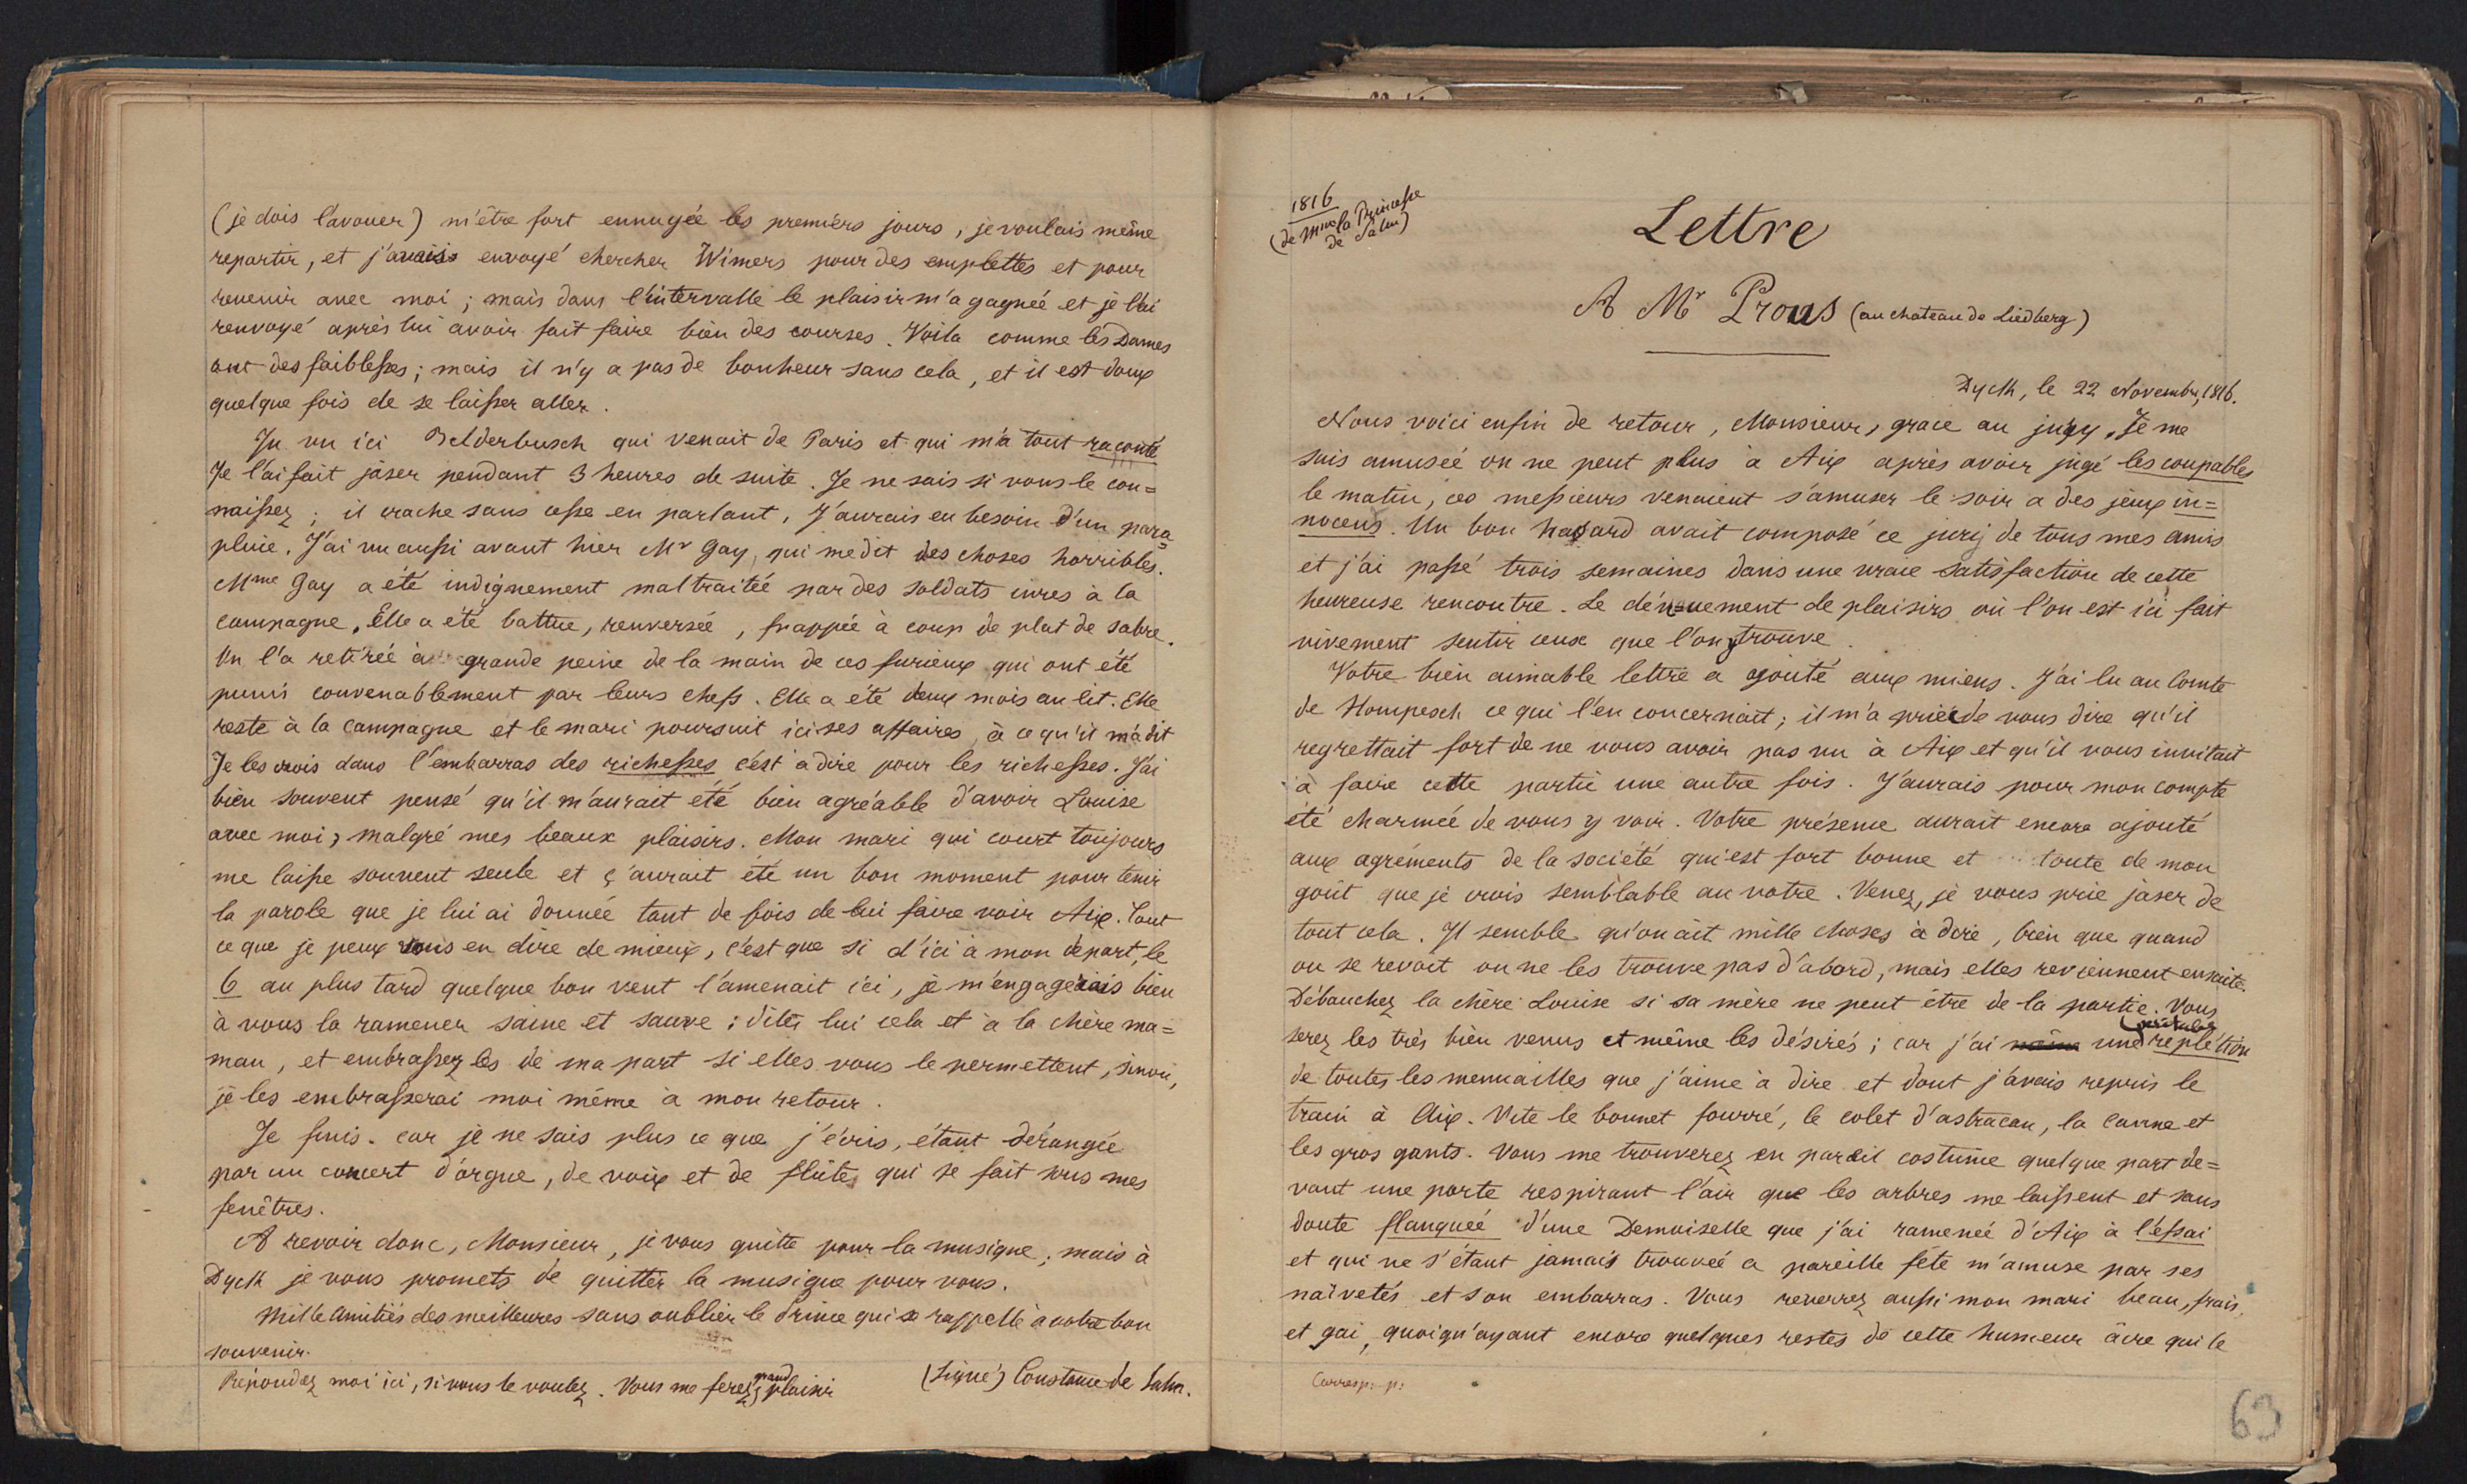 (je dois l'avouer) m'être fort ennuyée les premiers jours, je voulais même
repartir, et j'avais envoyé chercher Wimers pour des emplettes et pour
revenir avec moi ; mais dans l'intervalle le plaisir m'a gagnée et je l'ai
renvoyé après lui avoir fait faire bien des courses. Voila comme les Dames
ont des faiblesses ; mais il n'y a pas de bonheur sans cela, et il est doux
quelque fois de se laisser aller.
J'u vu ici Belderbusch qui venait de Paris et qui m'a tout raconté
Je l'ai fait jaser pendant 3 heures de suite. Je ne sais si vous le con=
naissez ; il crache sans cesse en parlant, J'aurais eu besoin d'un para=
pluie. J'ai vu aussi avant hier Mr Gay, qui me dit des choses horribles.
Mme Gay a été indignement maltraitée par des soldats ivres à la
campagne, Elle a été battue, renversée, frappée à coup de plat de sabre.
On l'a retirée à grande peine de la main de ces furieux qui ont été
punis convenablement par leurs chefs. Elle a été deux mois au lit. Elle
reste à la campagne et le mari poursuit ici ses affaires, à ce qu'il m'a dit
Je les crois dans l'embarras des richesses c'est à dire pour les richesses. J'ai
bien souvent pensé qu'il m'aurait été bien agréable d'avoir Louise
avec moi, malgré mes beaux plaisirs. Mon mari qui court toujours
me laisse souvent seule et ç'aurait été un bon moment pour tenir
la parole que je lui ai donnée tant de fois de lui faire voir Aix. Tout
ce que je peux vous en dire de mieux, c'est que si d'ici à mon départ, le
6 au plus tard quelque bon vent l'amenait ici, je m'engagerais bien
à vous la ramener saine et sauve : dites lui cela et à la chère ma=
man, et embrassez les de ma part si elles vous le permettent, sinon,
je les embrasserai moi même à mon retour.
Je finis. car je ne sais plus ce que j'écris, étant dérangée
par un concert d'orgue, de voix et de flûtes qui se fait sous mes
fenêtres.
A revoir donc, Monsieur, je vous quitte pour la musique, mais à
Dyck je vous promets de quitter la musique pour vous.
Mille amitiés des meilleures sans oublier le Prince qui se rappelle à votre bon
souvenir.
(Signé) Constance de Salm.
Répondez moi ici, si vous le voulez. Vous me ferez grand plaisir
1816
(de Mme la Princesse
de Salm)
Lettre
A Mr Prous (au chateau de Liedberg)
Dyck, le 22 Novembre, 1816.
Nous voici enfin de retour, Monsieur, grace au jury, Je me
suis amusée on ne peut plus à Aix après avoir jugé les coupables
le matin, ces messieurs venaient s'amuser le soir a des jeux in=
nocens. Un bon hasard avait composé ce jury de tous mes amis
et j'ai passé trois semaines dans une vraie satisfaction de cette
heureuse rencontre. Le dénuement de plaisirs où l'on est ici fait
vivement sentir ceux que l'on y trouve.
Votre bien aimable lettre a ajouté aux miens. J'ai lu au Comte
de Hompesch ce qui l'en concernait ; il m'a prié de vous dire qu'il
regrettait fort de ne vous avoir pas vu à Aix et qu'il vous invitait
à faire cette partie une autre fois. J'aurais pour mon compte
été charmée de vous y voir. Votre présence aurait encore ajouté
aux agréments de la société qui est fort bonne et toute de mon
goût que je crois semblable au votre. Venez, je vous prie jaser de
tout cela. Il semble qu'on ait mille choses à dire, bien que quand
on se revoit on ne les trouve pas d'abord, mais elles reviennent ensuite.
Débauchez la chère Louise si sa mère ne peut être de la partie. Vous
serez les très bien venus et même les désirés ; car j'ai même une véritable réplétion
de toutes les menuailles que j'aime à dire et dont j'avais repris le
train à Aix. Vite le bonnet fourré, le colet d'astracan, la canne et
les gros gants. Vous me trouverez en pareil costume quelque part de=
vant une porte respirant l'air que les arbres me laissent et sans
doute flanquée d'une Demoiselle que j'ai ramenée d'Aix à l'essai
et qui ne s'étant jamais trouvée a pareille fête m'amuse par ses
naïvetés et son embarras. Vous reverrez aussi mon mari beau, frais,
et gai, quoiqu'ayant encore quelques restes de cette humeur âcre qui le
Corresp. p.
63